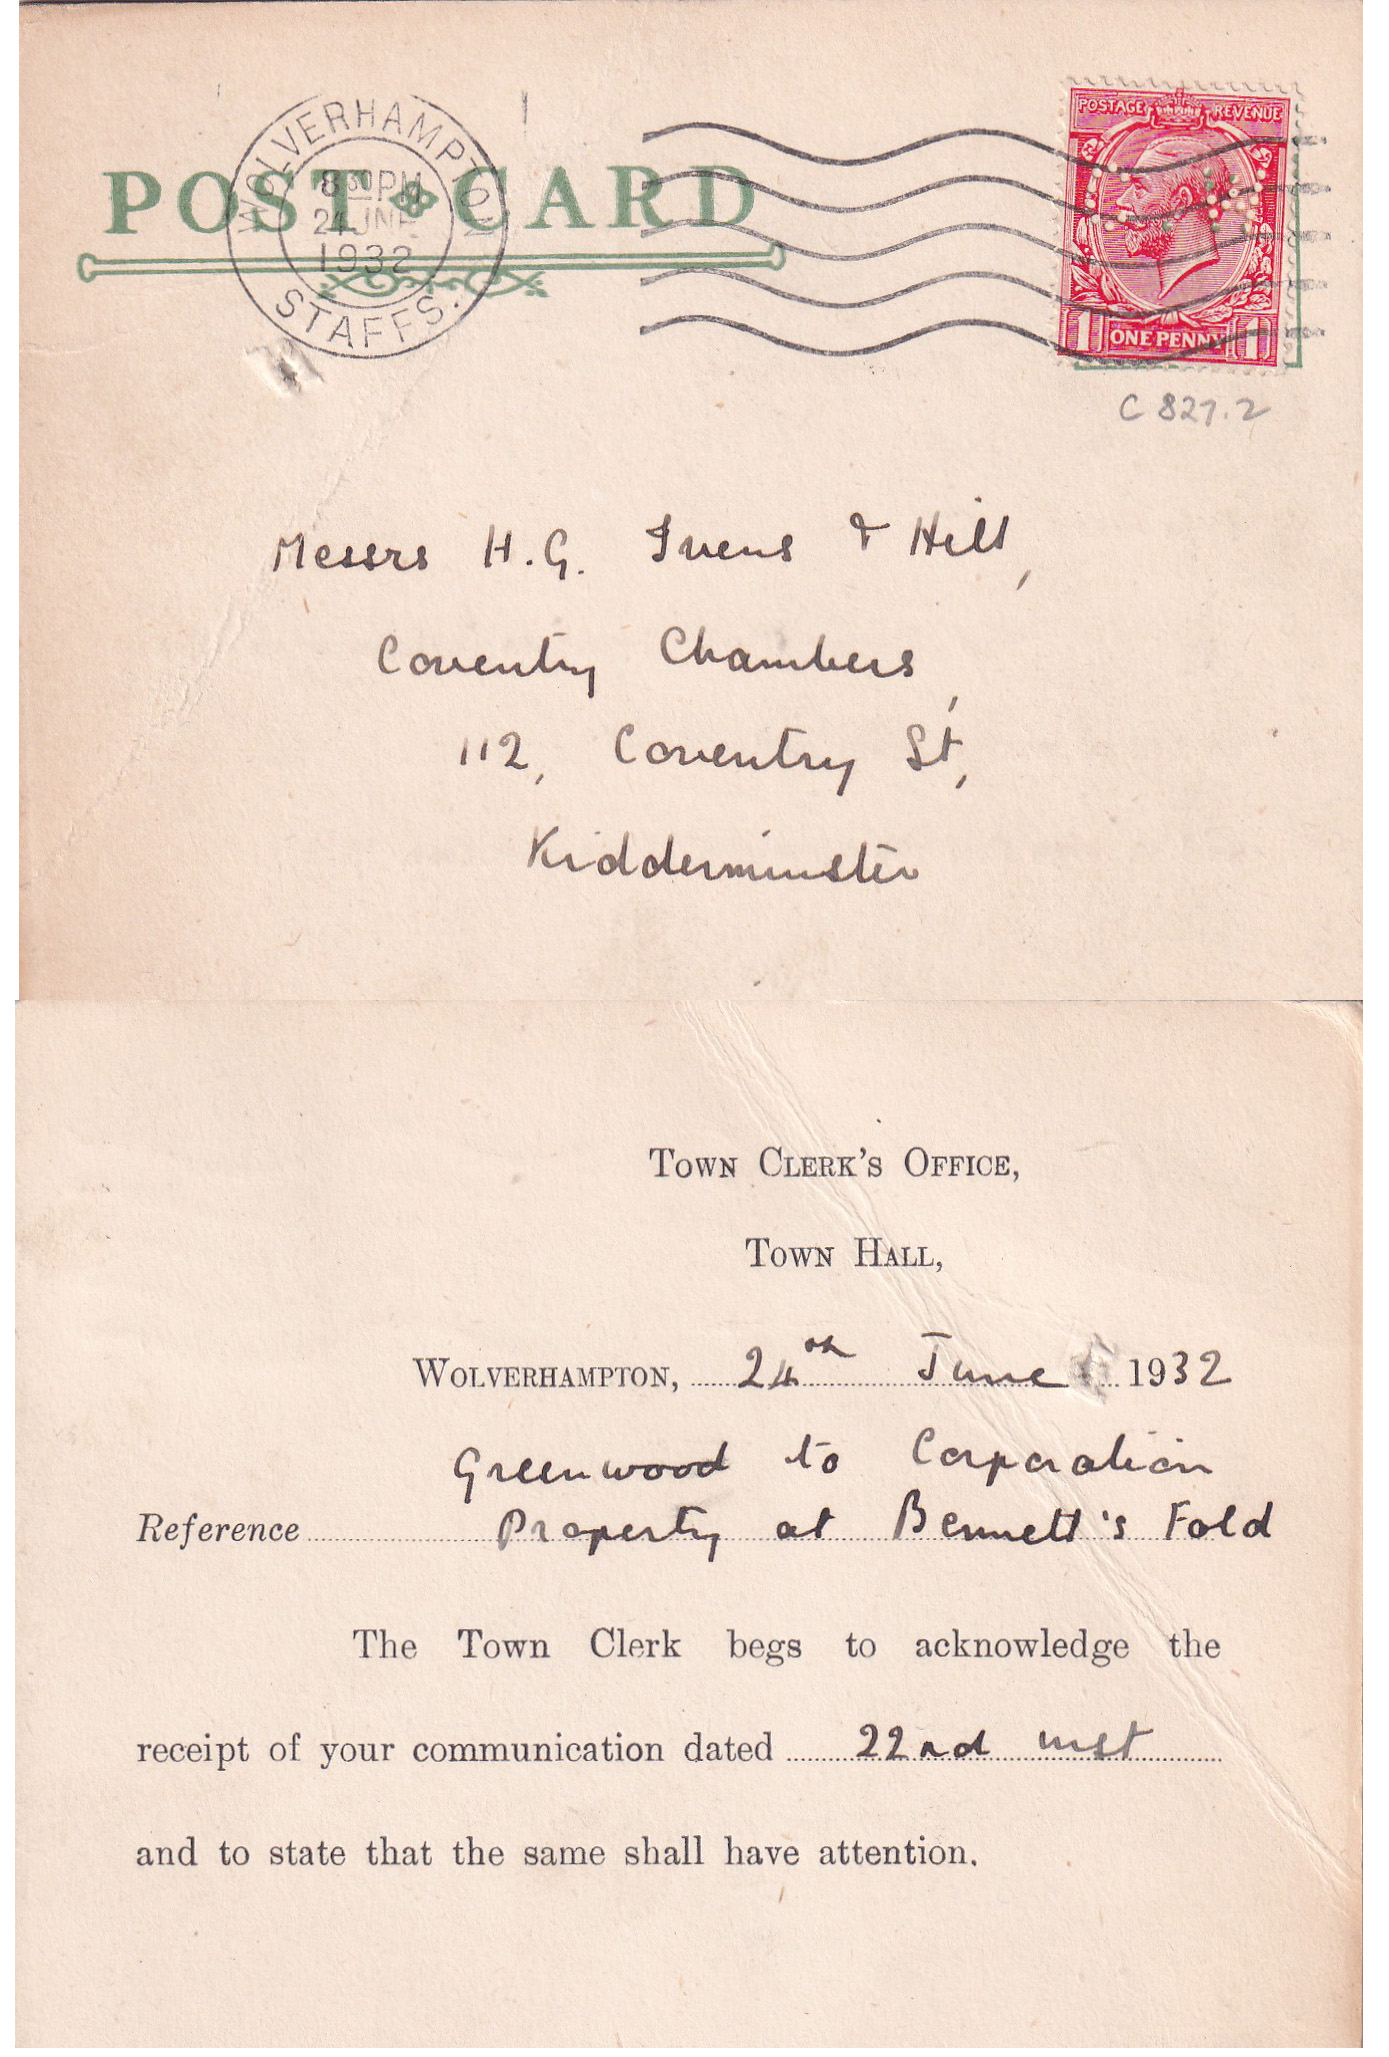 WOLVERHAMPTON
8 30 PM
24 JNE
1932
STAFFS.
POST CARD
POSTAGE REVENUE
1 ONE PENNY 1
C 827.2
Messrs H.G. Ivens & Hill,
Coventry Chambers,
112, Coventry St,
Kidderminster
TOWN CLERK'S OFFICE,
TOWN HALL,
WOLVERHAMPTON, 24th June 1932
Greenwood to Corporation
Reference Property at Bennett's Fold
The Town Clerk begs to acknowledge the
receipt of your communication dated 22nd inst
and to state that the same shall have attention.